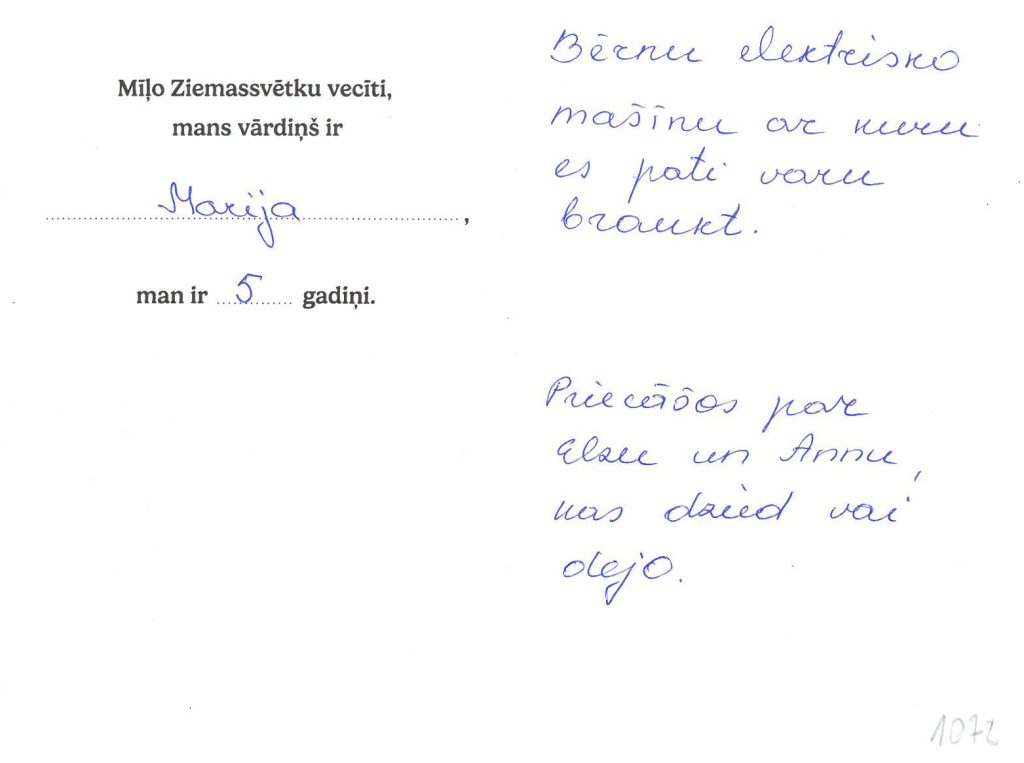 Mīļo Ziemassvētku vecīti,
mans vārdiņš ir
Marija,
man ir 5 gadiņi.
Bērnu elektrisko
mašīnu ar kuru
es pati varu
braukt.
Priecāšos par
Elzu un Annu,
kas dzied vai
dejo.
1072